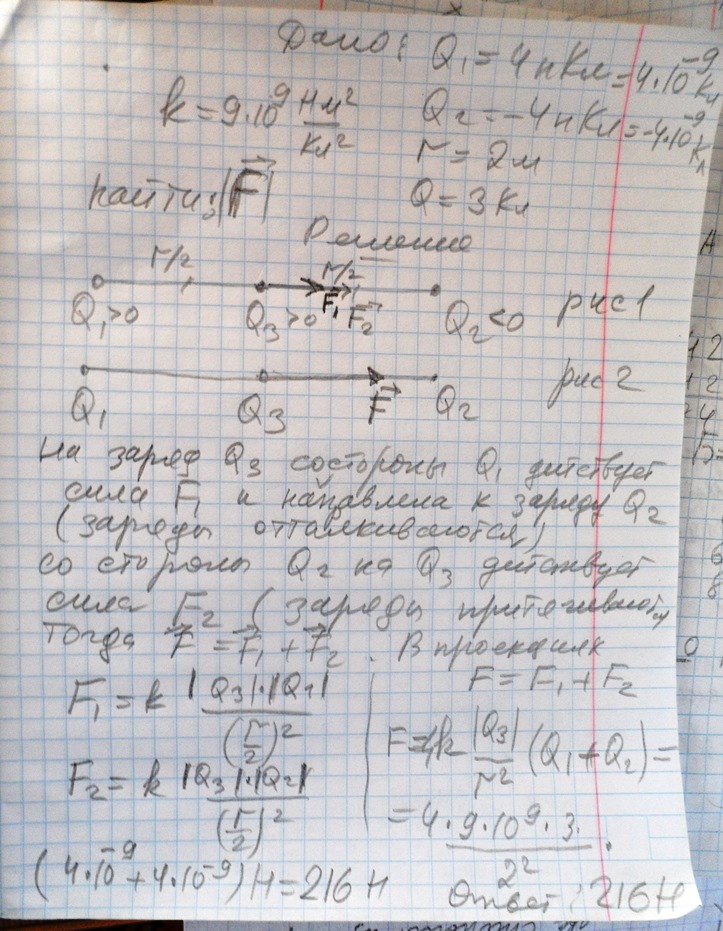 Дано: Q₁ = 4 нКл = 4·10⁻⁹ Кл
k = 9·10⁹ Н·м²/Кл² Q₂ = -4 нКл = -4·10⁻⁹ Кл
r = 2 м
найти: |F⃗| Q = 3 Кл
3
Решение
r/2 r/2
F⃗₁ F⃗₂
Q₁>0 Q₃>0 Q₂<0 рис 1
Q₁ Q₃ F⃗ Q₂ рис 2
На заряд Q₃ состороны Q₁ действует
сила F₁ и направлена к заряду Q₂
(заряды отталкиваются)
со стороны Q₂ на Q₃ действует
сила F₂ (заряды притягиваются)
Тогда F⃗ = F⃗₁ + F⃗₂. В проекциях
F = F₁ + F₂
F₁ = k |Q₃|·|Q₂| / (r/2)²
F = 4k |Q₃| / r² (Q₁ + Q₂) =
F₂ = k |Q₃|·|Q₂| / (r/2)²
= 4·9·10⁹·3 / 2² ·
(4·10⁻⁹ + 4·10⁻⁹) Н = 216 Н
Ответ: 216 Н